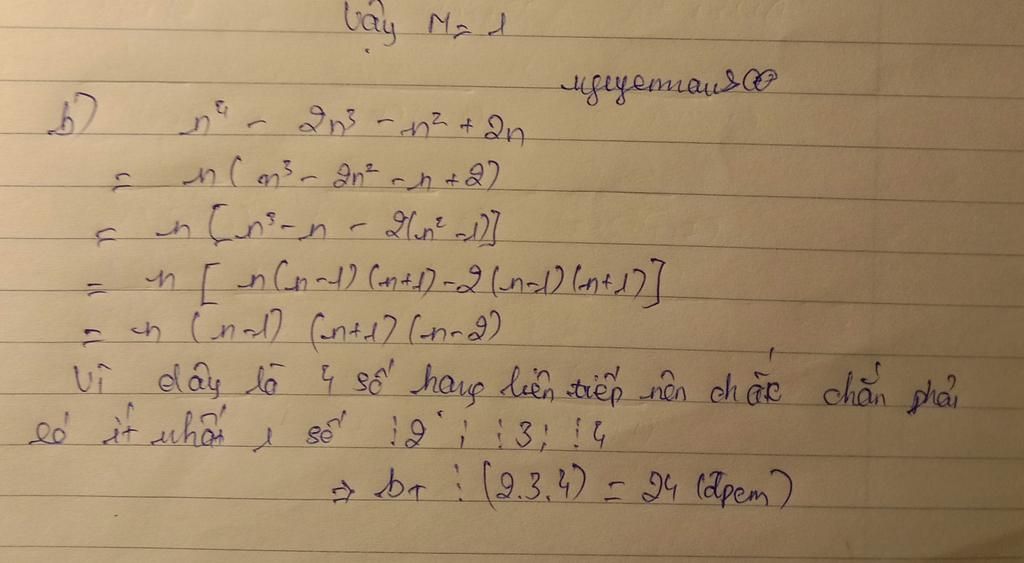 Vậy M = 1
nguyentau2k
b) n⁴ - 2n³ - n² + 2n
= n(n³ - 2n² - n + 2)
= n[n³ - n - 2(n² - 1)]
= n[n(n-1)(n+1) - 2(n-1)(n+1)]
= n(n-1)(n+1)(n-2)
Vì đây là 4 số hạng liên tiếp nên chắc chắn phải
có ít nhất 1 số ⋮2; ⋮3; ⋮4
⇒ bt ⋮ (2.3.4) = 24 (đpcm)